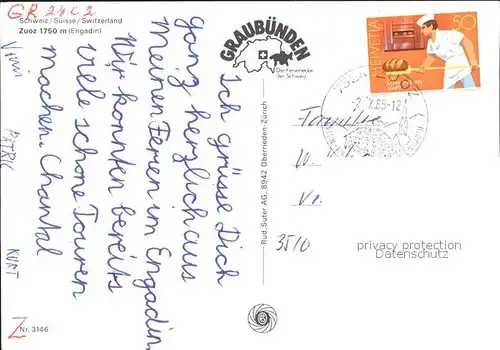 GR 24c2
Schweiz / Suisse / Switzerland
Zuoz 1750 m (Engadin)
Ich grüsse Dich
ganz herzlich aus
Meinen Ferien im Engadin.
Wir konnten bereits
viele schöne Touren
machen. Chantal
PATRIC
KURT
Z Nr. 3146
GRAUBÜNDEN
Die Ferienecke
der Schweiz
Rud. Suter AG, 8942 Oberrieden-Zürich
HELVETIA
50
Familie
3510
privacy protection
Datenschutz